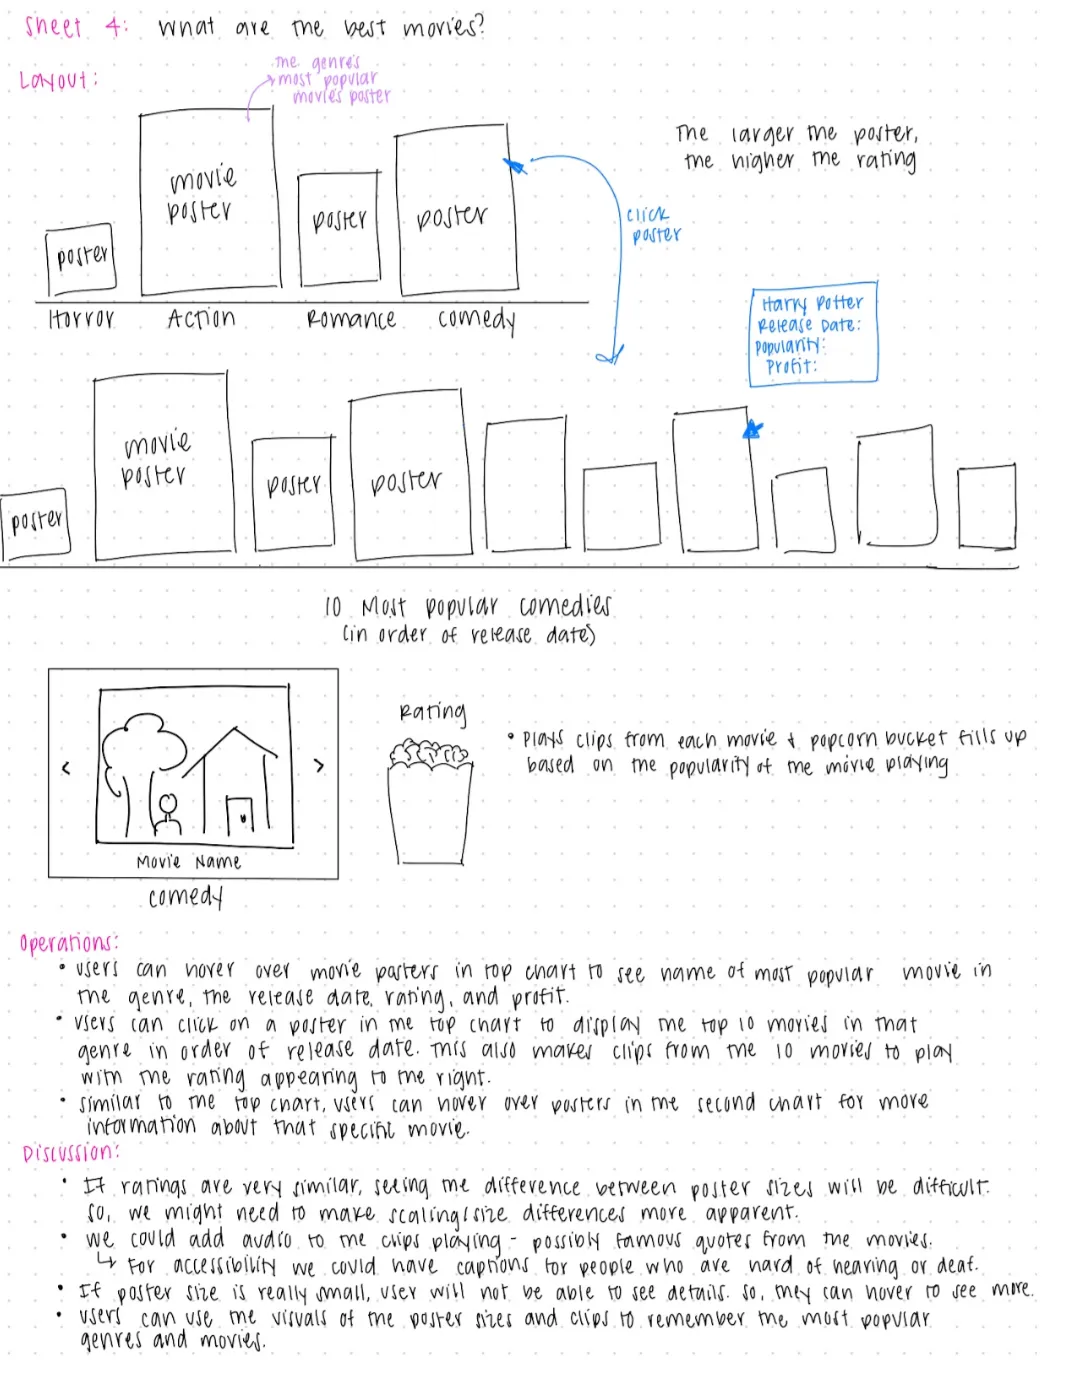 Sheet 4: What are the best movies?
Layout:
the genre's
most popular
movie's poster
The larger the poster,
the higher the rating
movie
poster
poster
poster
poster
click
poster
Horror Action Romance comedy
Harry Potter
Release Date:
Popularity:
Profit:
movie
poster
poster
poster
poster
10 Most popular comedies
(in order of release date)
Rating
• Plays clips from each movie & popcorn bucket fills up
based on the popularity of the movie playing
< >
Movie Name
comedy
Operations:
• users can hover over movie posters in top chart to see name of most popular movie in
the genre, the release date, rating, and profit.
• Users can click on a poster in the top chart to display the top 10 movies in that
genre in order of release date. This also makes clips from the 10 movies to play
with the rating appearing to the right.
• similar to the top chart, users can hover over posters in the second chart for more
information about that specific movie.
Discussion:
• If ratings are very similar, seeing the difference between poster sizes will be difficult.
so, we might need to make scaling/size differences more apparent.
• we could add audio to the clips playing - possibly famous quotes from the movies.
↳ For accessibility we could have captions for people who are hard of hearing or deaf.
• If poster size is really small, user will not be able to see details. so, they can hover to see more.
• users can use the visuals of the poster sizes and clips to remember the most popular
genres and movies.